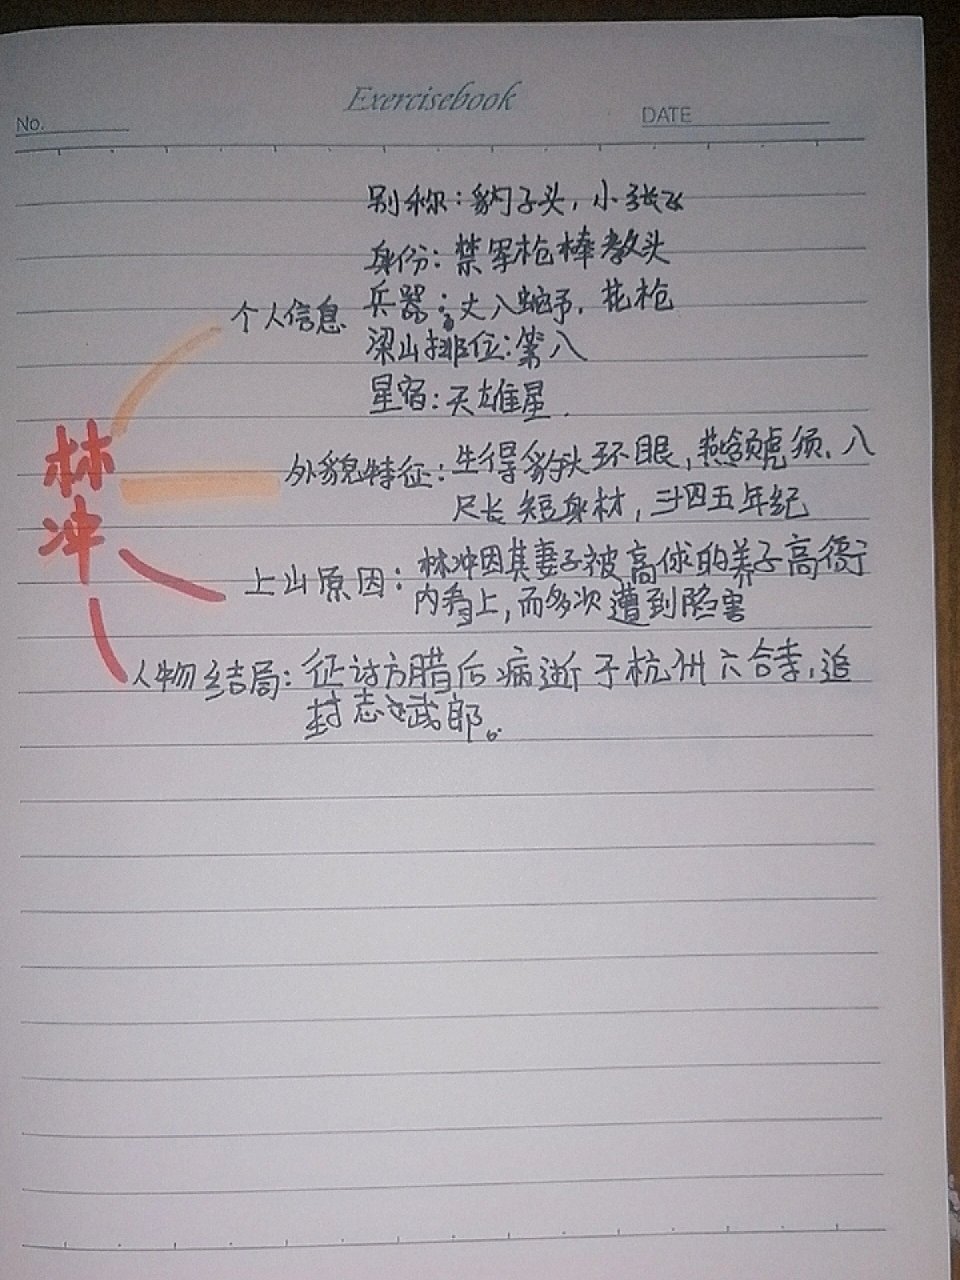 Exercisebook
No.
DATE
别称：豹子头，小张飞
身份：禁军枪棒教头
个人信息
兵器：丈八蛇矛，花枪
梁山排位：第八
星宿：天雄星.
林冲
外貌特征：生得豹头环眼，燕颔虎须、八
尺长短身材，三十四五年纪
上山原因：林冲因其妻子被高俅的养子高衙
内看上，而多次遭到陷害
人物结局：征讨方腊后病逝于杭州六合寺，追
封忠武郎。